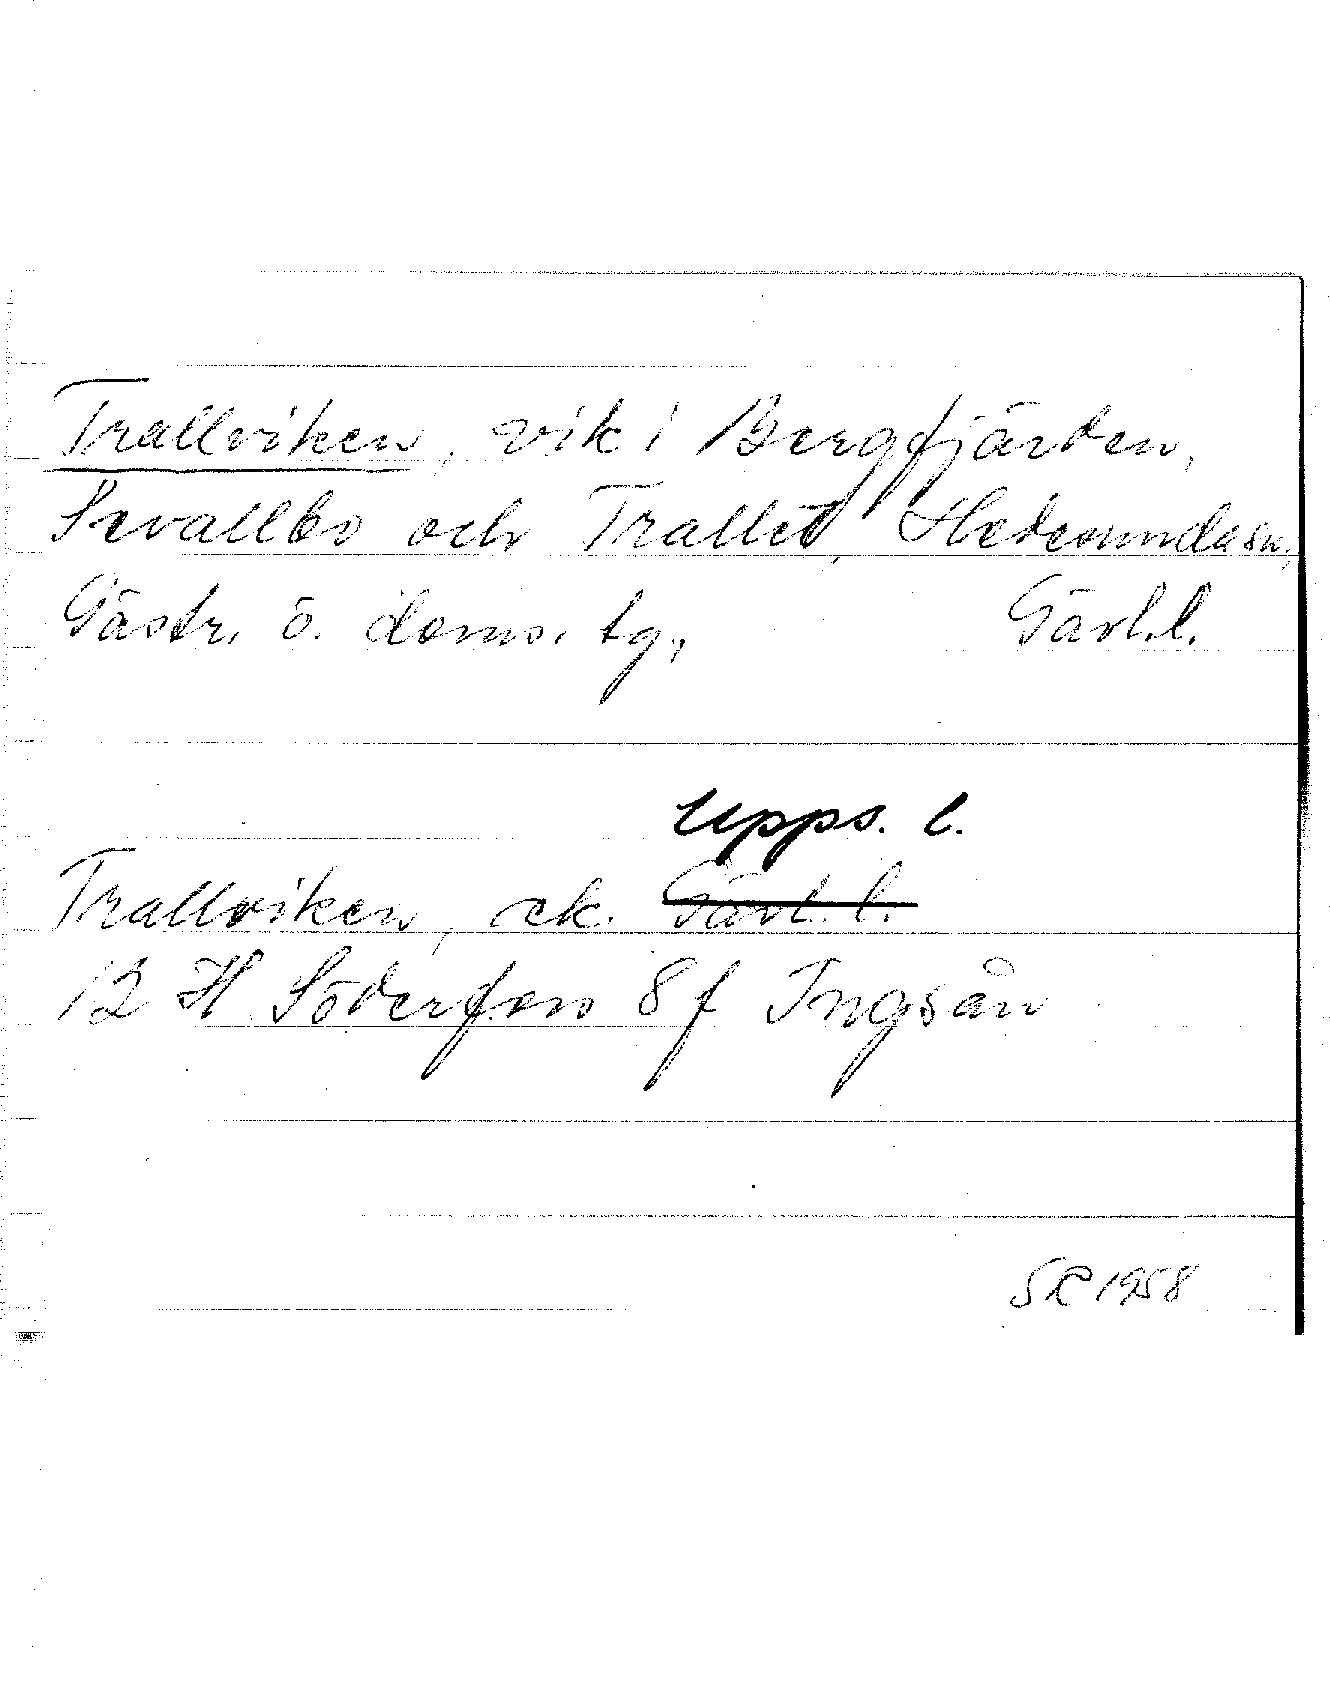 Trallviken, vik i Bergfjärden,
Sevallbo och Trallet, Hedesunda sn,
Gästr. ö. doms. tg,  Gävl.l.
Upps. l.
Trallviken, ek. Gävl. l.
12 H Söderfors 8 f Ingsån
SR 1958